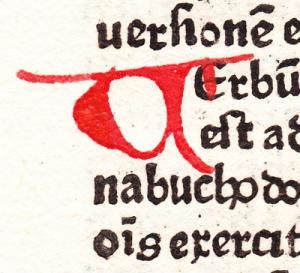 uersionē e
UErbū
est ad
nabuchodo
oīs exercit